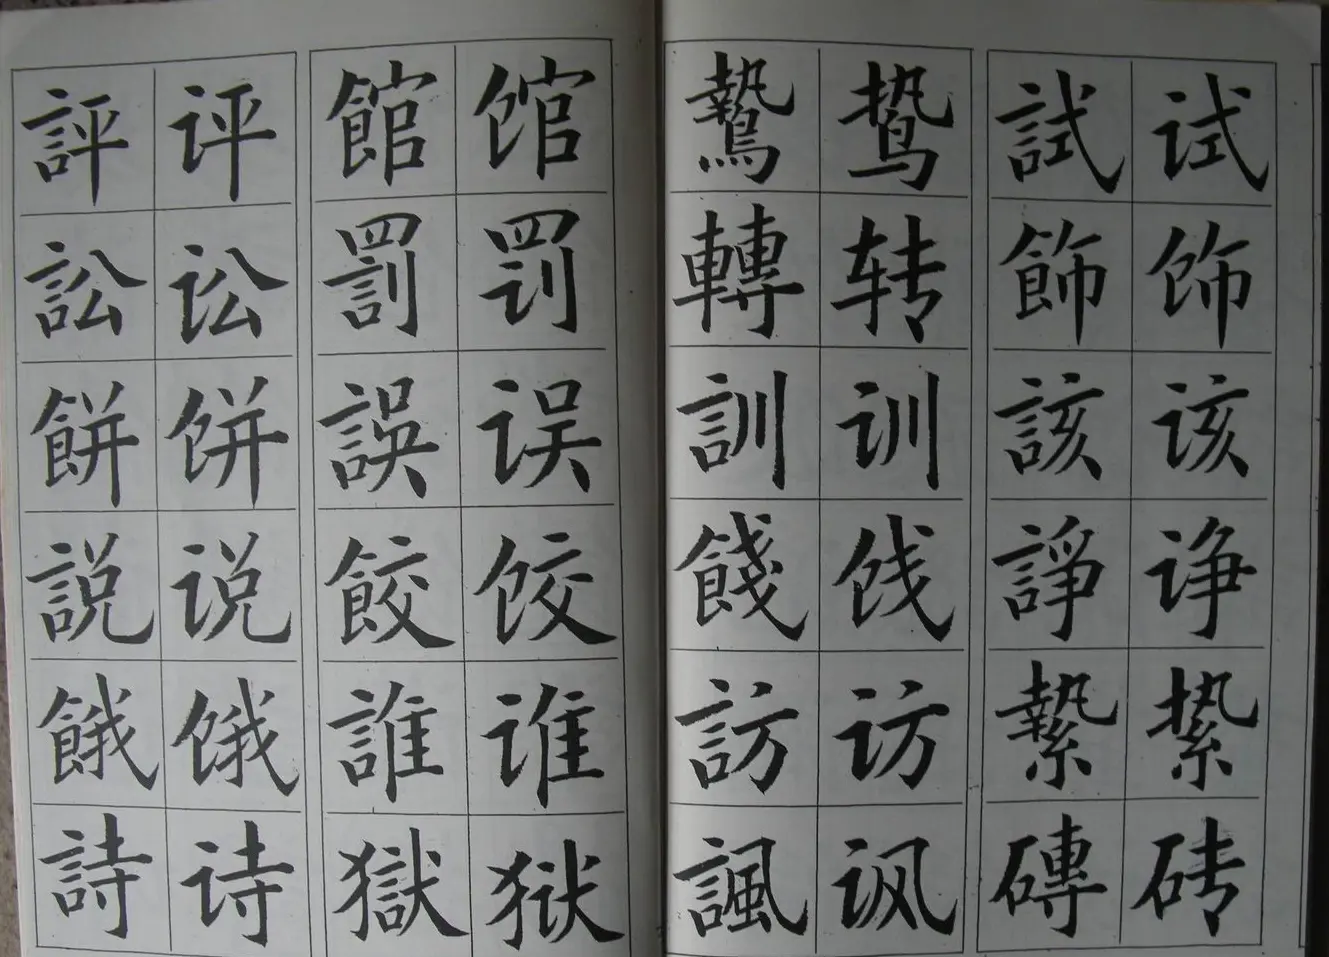 評 评 館 馆 鷙 鸷 試 试
訟 讼 罰 罚 轉 转 飾 饰
餅 饼 誤 误 訓 训 該 该
説 说 餃 饺 餞 饯 諍 诤
餓 饿 誰 谁 訪 访 縶 絷
詩 诗 獄 狱 諷 讽 磚 砖